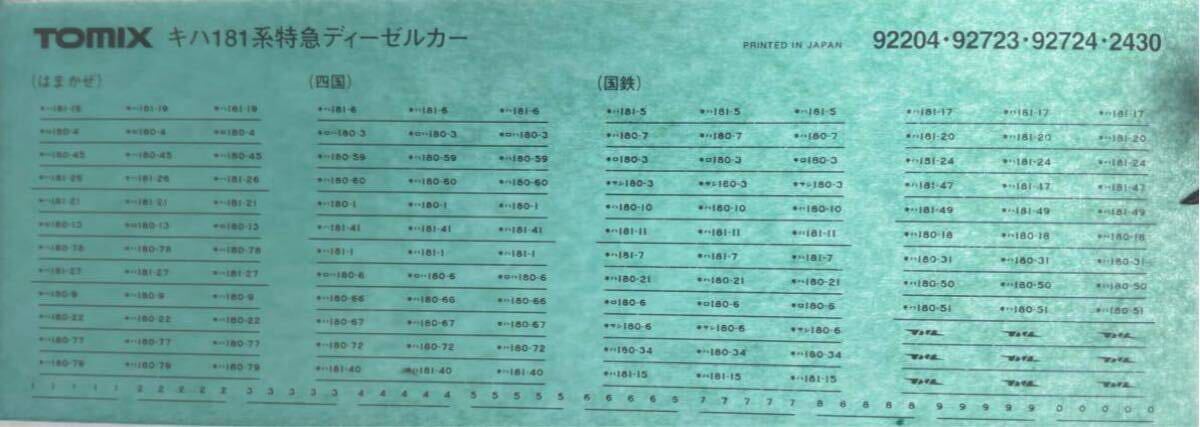 TOMIX キハ181系特急ディーゼルカー PRINTED IN JAPAN 92204・92723・92724・2430
(はまかぜ)
キハ181-19 キハ181-19 キハ181-19
キロ180-4 キロ180-4 キロ180-4
キハ180-45 キハ180-45 キハ180-45
キハ181-26 キハ181-26 キハ181-26
キハ181-21 キハ181-21 キハ181-21
キロ180-13 キロ180-13 キロ180-13
キハ180-78 キハ180-78 キハ180-78
キハ181-27 キハ181-27 キハ181-27
キハ180-9 キハ180-9 キハ180-9
キハ180-22 キハ180-22 キハ180-22
キハ180-77 キハ180-77 キハ180-77
キハ180-79 キハ180-79 キハ180-79
(四国)
キハ181-6 キハ181-6 キハ181-6
キロハ180-3 キロハ180-3 キロハ180-3
キハ180-59 キハ180-59 キハ180-59
キハ180-60 キハ180-60 キハ180-60
キハ180-1 キハ180-1 キハ180-1
キハ181-41 キハ181-41 キハ181-41
キハ181-1 キハ181-1 キハ181-1
キロハ180-6 キロハ180-6 キロハ180-6
キハ180-66 キハ180-66 キハ180-66
キハ180-67 キハ180-67 キハ180-67
キハ180-72 キハ180-72 キハ180-72
キハ181-40 キハ181-40 キハ181-40
(国鉄)
キハ181-5 キハ181-5 キハ181-5
キハ180-7 キハ180-7 キハ180-7
キロ180-3 キロ180-3 キロ180-3
キサシ180-3 キサシ180-3 キサシ180-3
キハ180-10 キハ180-10 キハ180-10
キハ181-11 キハ181-11 キハ181-11
キハ181-7 キハ181-7 キハ181-7
キハ180-21 キハ180-21 キハ180-21
キロ180-6 キロ180-6 キロ180-6
キサシ180-6 キサシ180-6 キサシ180-6
キハ180-34 キハ180-34 キハ180-34
キハ181-15 キハ181-15 キハ181-15
キハ181-17 キハ181-17 キハ181-17
キハ181-20 キハ181-20 キハ181-20
キハ181-24 キハ181-24 キハ181-24
キハ181-47 キハ181-47 キハ181-47
キハ181-49 キハ181-49 キハ181-49
キハ180-18 キハ180-18 キハ180-18
キハ180-31 キハ180-31 キハ180-31
キハ180-50 キハ180-50 キハ180-50
キハ180-51 キハ180-51 キハ180-51
1 1 1 1 1 2 2 2 2 2 3 3 3 3 3 4 4 4 4 4 5 5 5 5 5 6 6 6 6 6 7 7 7 7 7 8 8 8 8 8 9 9 9 9 9 0 0 0 0 0